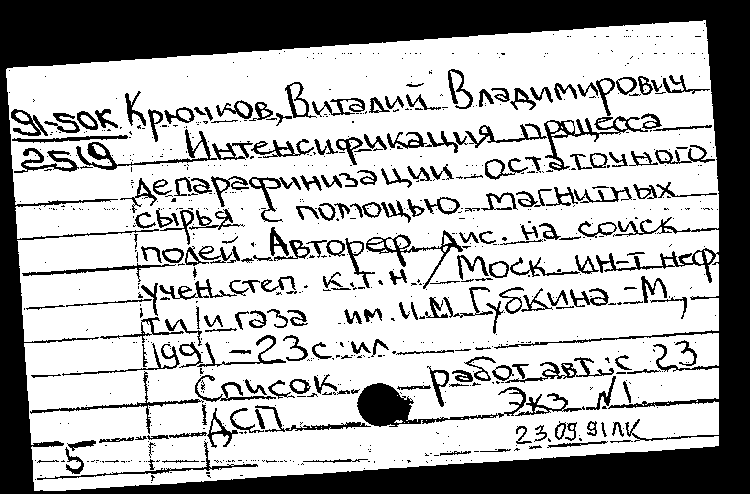 91-50К Крючков, Виталий Владимирович
2519 Интенсификация процесса
депарафинизации остаточного
сырья с помощью магнитных
полей: Автореф. дис. на соиск
учен. степ. к.т.н. / Моск. ин-т неф
ти и газа им. И.М. Губкина -М.,
1991 -23с: ил.
Список работ авт.: с. 23
ДСП Экз №1.
5 23.09.91 ЛК